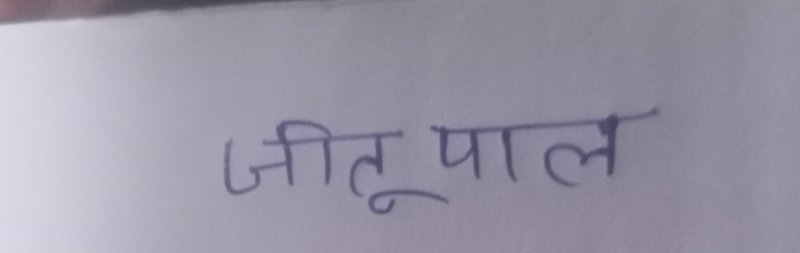 जीतू पाल